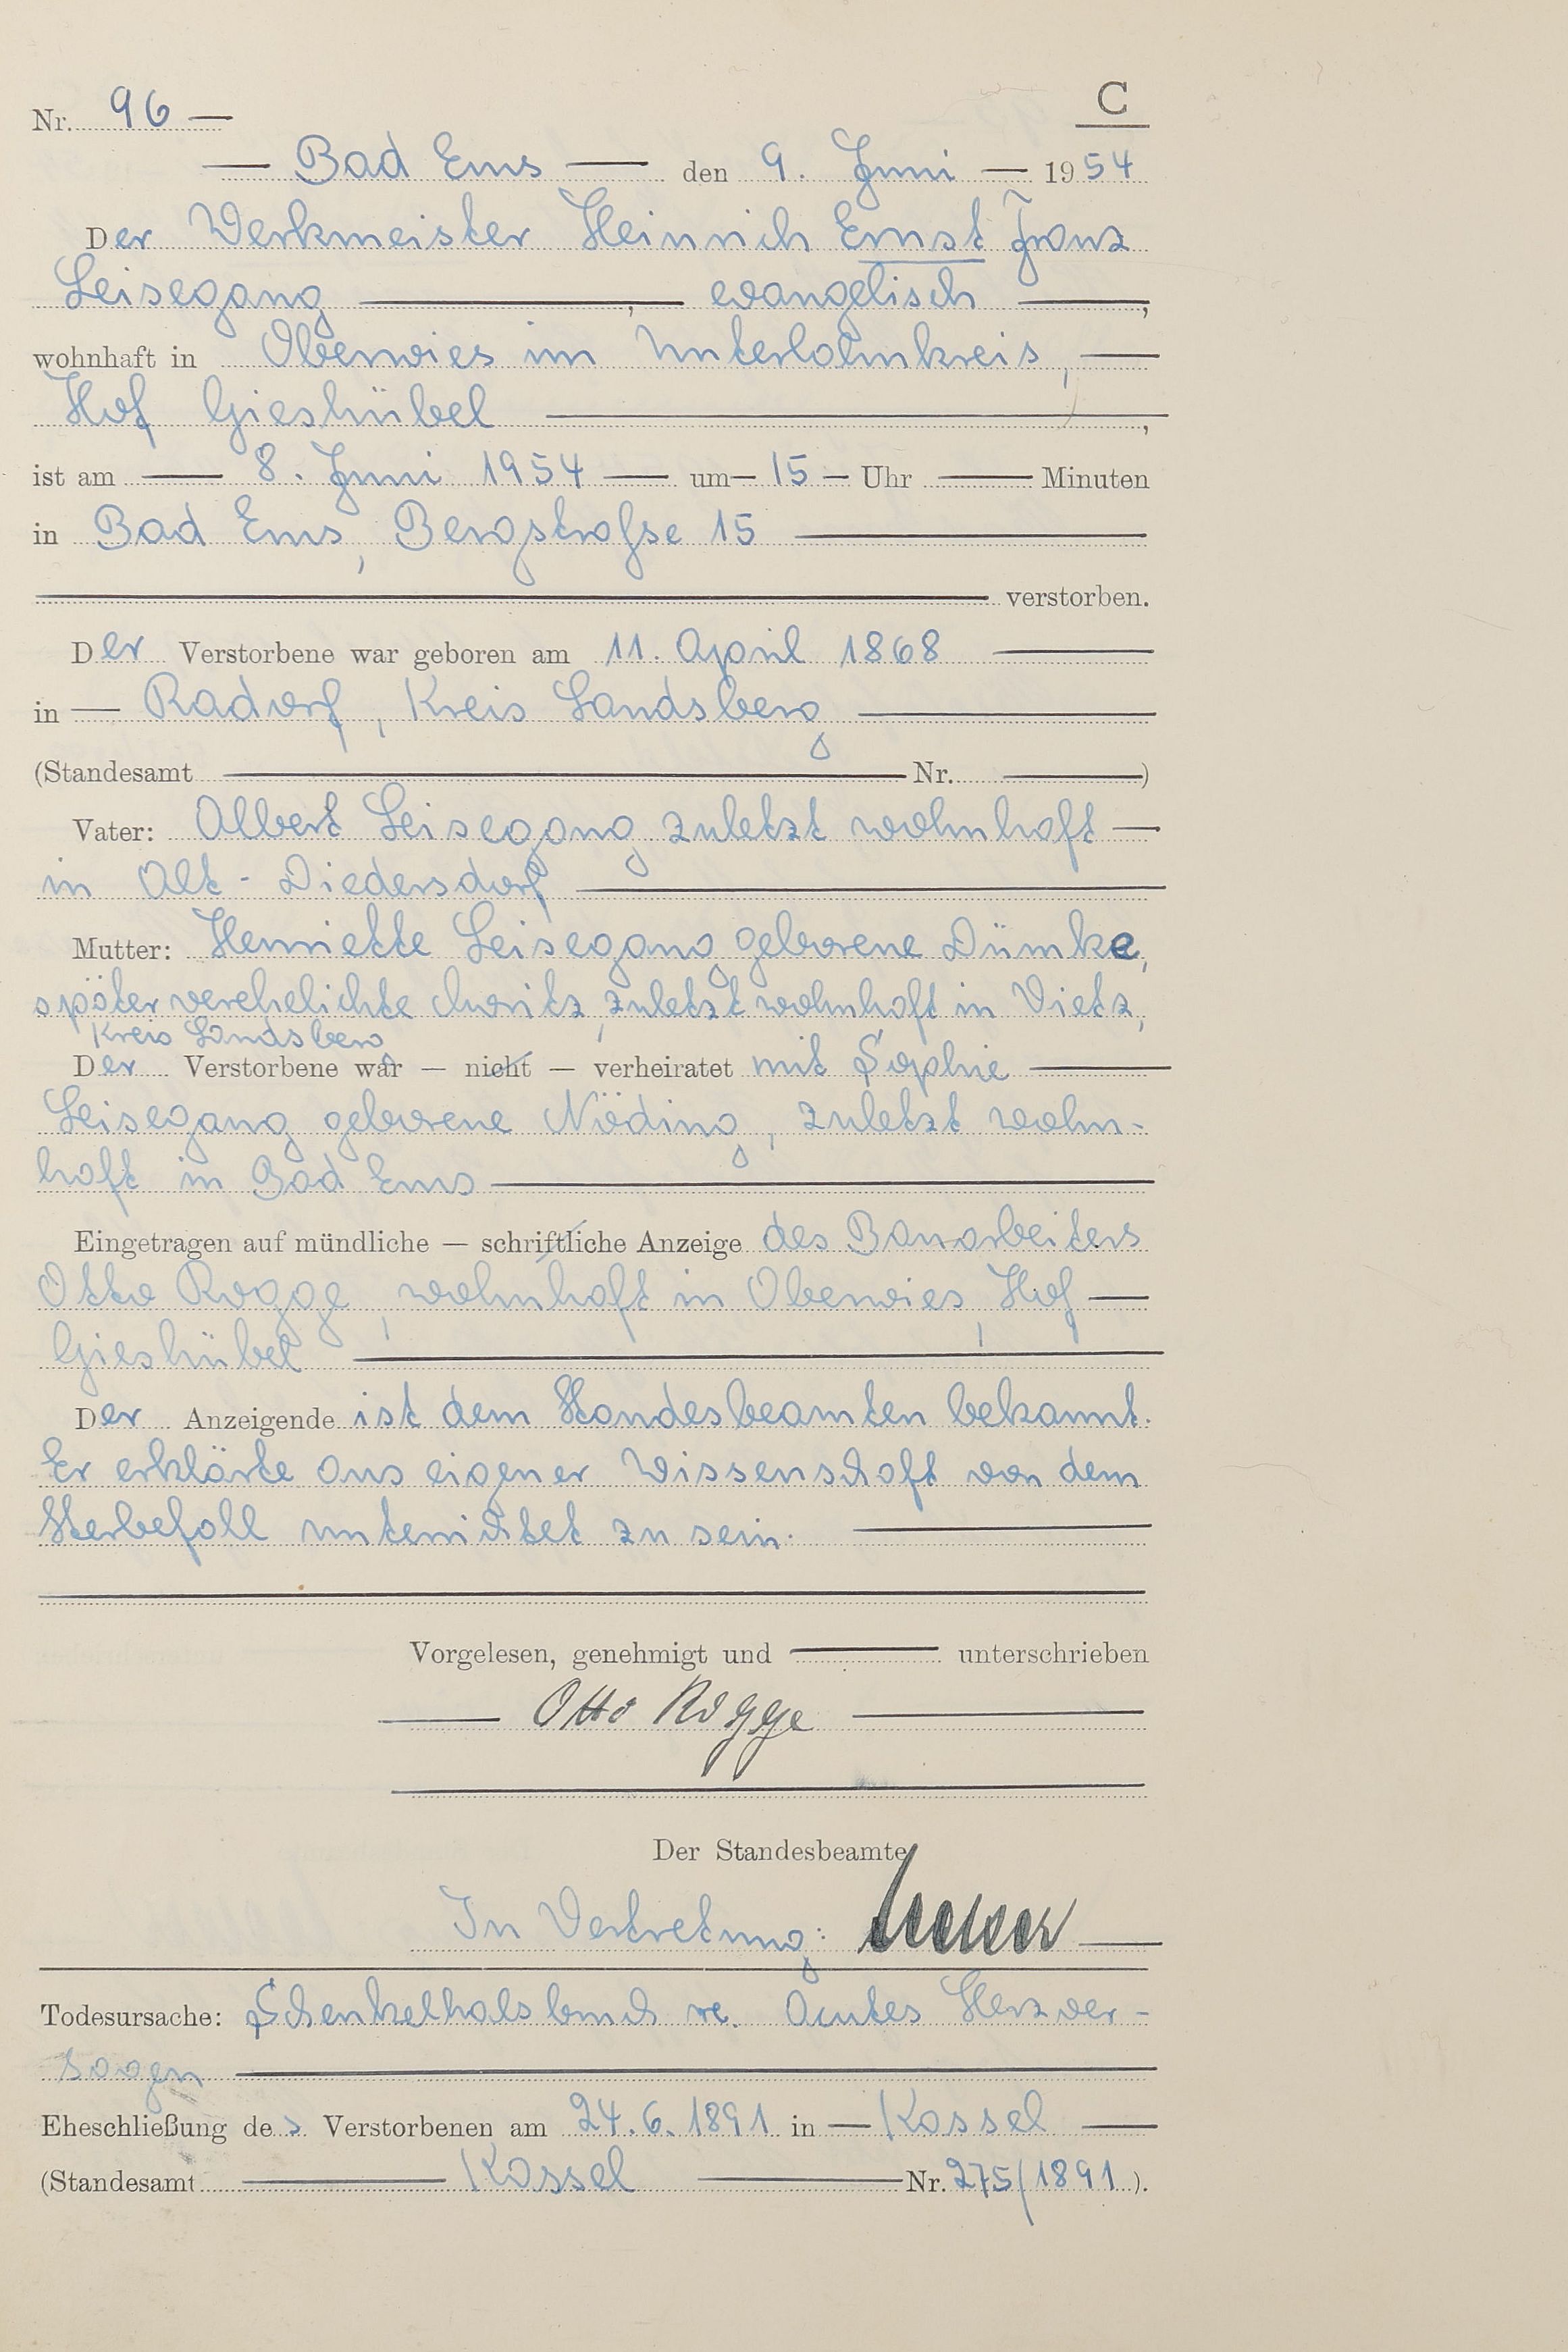 C
Nr. 96 —
— Bad Ems — den 9. Juni — 1954
Der Werkmeister Heinrich Ernst Franz
Leisegang —, evangelisch —,
wohnhaft in Oberwies im Unterlahnkreis, —
Hof Gieshübel —,
ist am — 8. Juni 1954 — um — 15 — Uhr — Minuten
in Bad Ems, Bergstraße 15 —
— verstorben.
Der Verstorbene war geboren am 11. April 1868 —
in — Radorf, Kreis Landsberg —
(Standesamt — Nr. —)
Vater: Albert Leisegang zuletzt wohnhaft —
in Alt-Diedersdorf —
Mutter: Henriette Leisegang geborene Dümke,
später verehelichte, zuletzt wohnhaft in Vietz,
Kreis Landsberg
Der Verstorbene war — nicht — verheiratet mit Sophie —
Leisegang geborene Nöding, zuletzt wohn-
haft in Bad Ems —
Eingetragen auf mündliche — schriftliche Anzeige des Bauarbeiters
Otto Rogge, wohnhaft in Oberwies, Hof —
Gieshübel —
Der Anzeigende ist dem Standesbeamten bekannt.
Er erklärte aus eigener Wissenschaft von dem
Sterbefall unterrichtet zu sein. —
Vorgelesen, genehmigt und — unterschrieben
— Otto Rogge —
Der Standesbeamte
In Vertretung:
Todesursache: Schenkelhalsbruch re. Acutes Herzver-
sagen —
Eheschließung des Verstorbenen am 24.6.1891 in — Kassel —
(Standesamt — Kassel — Nr. 275/1891).